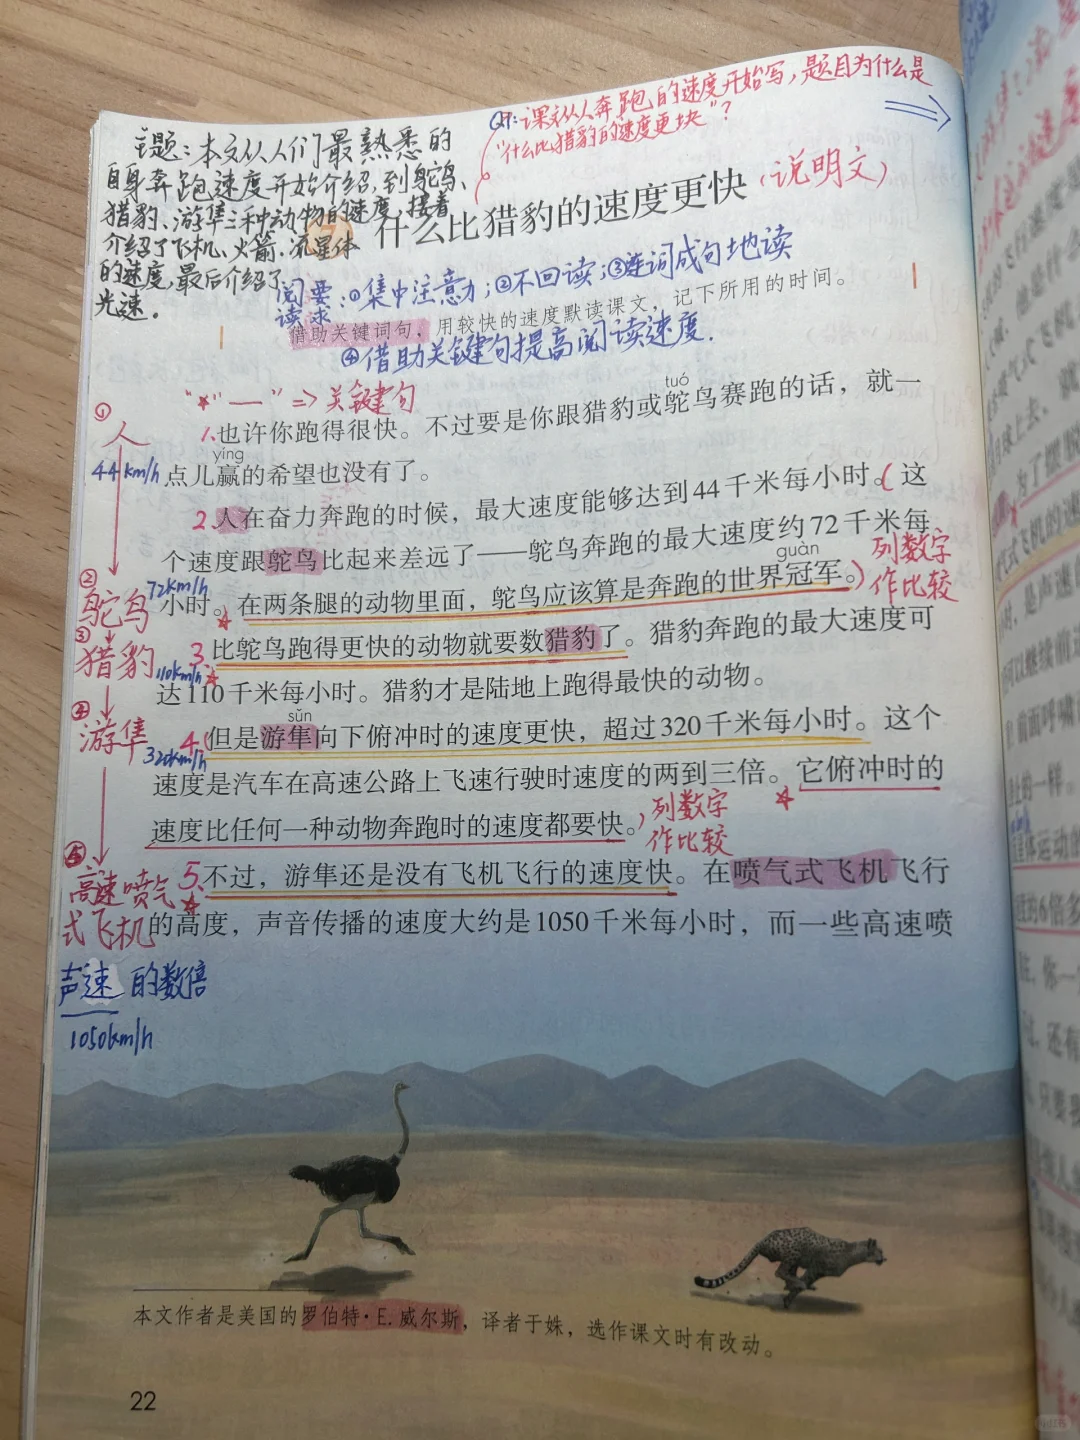 Q1:课文从人奔跑的速度开始写,题目为什么是
"什么比猎豹的速度更快"?
主题:本文从人们最熟悉的
自身奔跑速度开始介绍,到鸵鸟、
猎豹、游隼三种动物的速度,接着
介绍了飞机、火箭、流星体
的速度,最后介绍了
光速。
7 什么比猎豹的速度更快(说明文)
阅读要求:①集中注意力;②不回读;③连词成句地读
借助关键词句,用较快的速度默读课文,记下所用的时间。
④借助关键句提高阅读速度.
"☆""—" => 关键句
tuó
1.也许你跑得很快。不过要是你跟猎豹或鸵鸟赛跑的话,就一
yíng
点儿赢的希望也没有了。
2.人在奋力奔跑的时候,最大速度能够达到44千米每小时。(这
个速度跟鸵鸟比起来差远了——鸵鸟奔跑的最大速度约72千米每
guàn
小时。☆在两条腿的动物里面,鸵鸟应该算是奔跑的世界冠军。)
列数字
作比较
3.☆比鸵鸟跑得更快的动物就要数猎豹了。猎豹奔跑的最大速度可
达110千米每小时。猎豹才是陆地上跑得最快的动物。
sǔn
4.(但是游隼向下俯冲时的速度更快,超过320千米每小时。这个
速度是汽车在高速公路上飞速行驶时速度的两到三倍。☆它俯冲时的
速度比任何一种动物奔跑时的速度都要快。)
列数字
作比较
5.☆不过,游隼还是没有飞机飞行的速度快。在喷气式飞机飞行
的高度,声音传播的速度大约是1050千米每小时,而一些高速喷
①
人
44km/h
②
鸵鸟
72km/h
③
猎豹
110km/h
④
游隼
320km/h
⑤
高速喷气
式飞机
声速的数倍
1050km/h
本文作者是美国的罗伯特·E.威尔斯,译者于姝,选作课文时有改动。
22